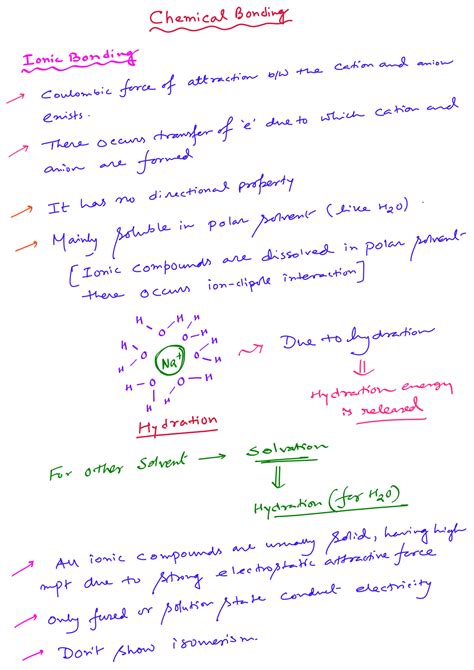 Chemical Bonding
Ionic Bonding
→ Coulombic force of attraction b/w the cation and anion
exists.
→ There occurs transfer of 'e' due to which cation and
anion are formed
→ It has no directional property
→ Mainly soluble in polar solvent (like H2O).
[Ionic compounds are dissolved in polar solvent
there occurs ion-dipole interaction]
H H H
H O O H
H O Na+ O H
H O O O H
H H H
→ Due to hydration
⇓
Hydration energy
is released
Hydration
For other Solvent → Solvation
⇓
Hydration (for H2O)
→ All ionic compounds are usually solid, having high
mpt due to strong electrostatic attractive force
→ Only fused or solution state conduct electricity
→ Don't show isomerism.